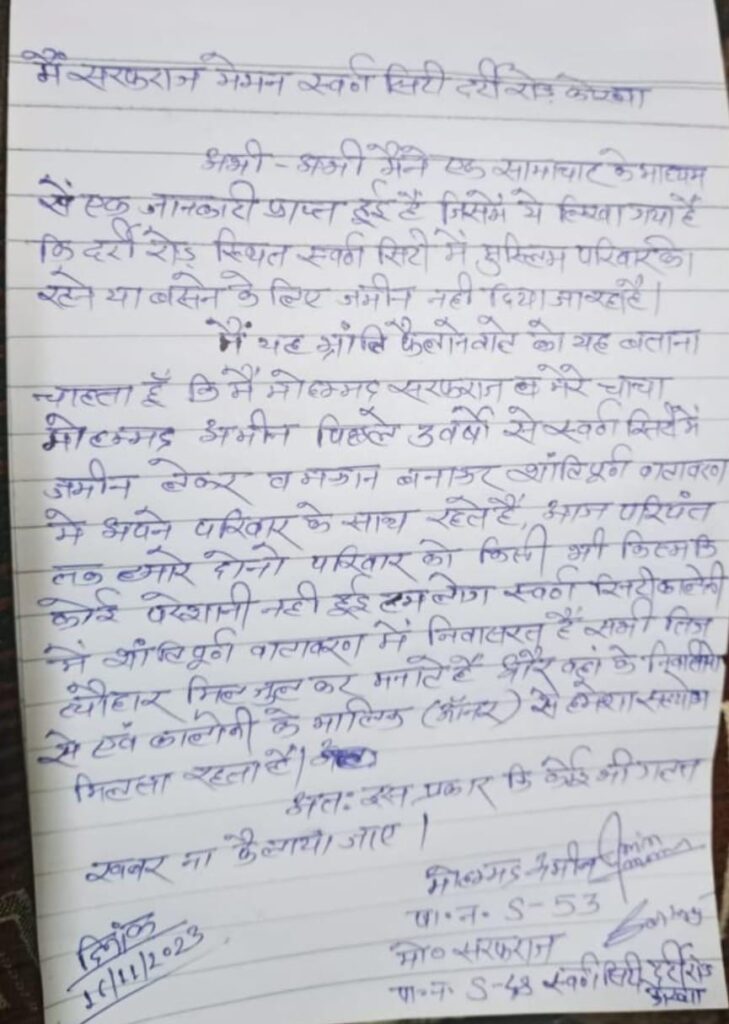 मैं सरफराज मेमन स्वर्ण सिटी दर्री रोड़ कोरबा
अभी - अभी मैंने एक सामाचार के माध्यम
से एक जानकारी प्राप्त हुई है जिसमें ये लिखा गया है
कि दर्री रोड़ स्थित स्वर्ण सिटी में मुस्लिम परिवार को
रहने या बसने के लिए जमीन नही दिया जा रहा है।
मैं यह भ्रांति फैलानेवाले को यह बताना
चाहता हूँ कि मैं मोहम्मद सरफराज व मेरे चाचा
मोहम्मद अमीन पिछले 3 वर्षो से स्वर्ण सिटी में
जमीन लेकर व मकान बनाकर शांतिपूर्ण वातावरण
मे अपने परिवार के साथ रहते है, आज परियंत
तक हमारे दोनो परिवार को किसी भी किस्म कि
कोई परेशानी नही हुई हम लोग स्वर्ण सिटी कालोनी
में शांतिपूर्ण वातावरण में निवासरत् हैं सभी तिज
त्यौहार मिल जुल कर मनाते है और वहां के निवासीयो
से एवं कालोनी के मालिक (ऑनर) से हमेशा सहयोग
मिलता रहता है।
अतः इस प्रकार कि कोई भी गलत
खबर ना फैलाया जाए।
मोहम्मद अमीन Amin
पा.न. S-53
मो० सरफराज
पा.न. S-48 स्वर्ण सिटी दर्री रोड़
कोरबा
दिनांक
/11/2023